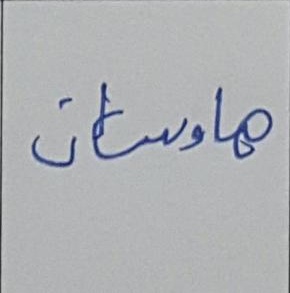 هاوستان